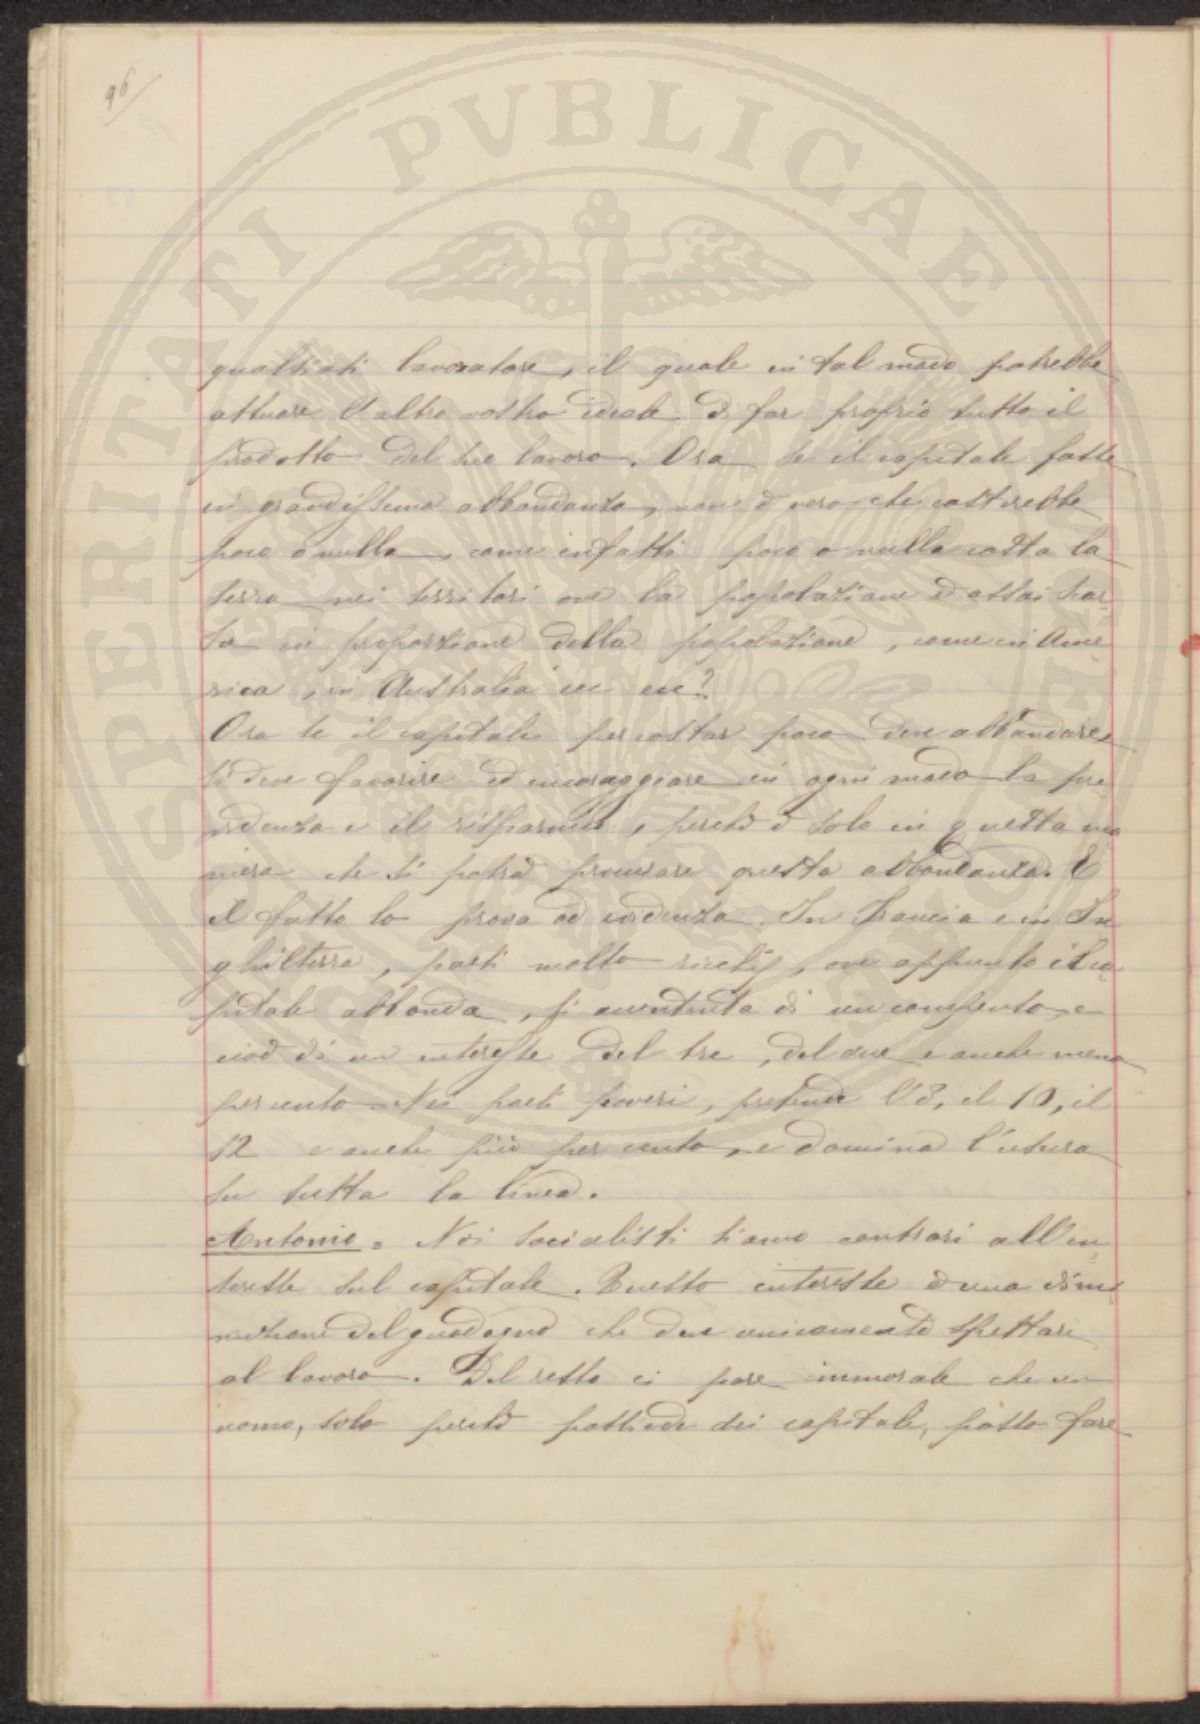 96
PROSPERITATI PVBLICAE
qualsiasi lavoratore, il quale in tal modo potrebbe
attuare l'altro vostro ideale di far proprio tutto il
prodotto del suo lavoro. Ora se il capitale fosse
in grandissima abbondanza, non è vero che costerebbe
poco o nulla, come infatti poco o nulla costa la
terra nei territori ove la popolazione è assai scar-
sa in proporzione della popolazione, come in Ame-
rica, in Australia ecc ecc?
Ora se il capitale per costar poco deve abbondare,
si deve favorire ed incoraggiare in ogni modo la pre-
videnza e il risparmio, perchè è solo in questa ma
niera che si potrà procurare questa abbondanza. E
il fatto lo prova ad evidenza. In Francia e in In
ghilterra, paesi molto ricchi, ove appunto il ca-
pitale abbonda, si accontenta di un compenso, e
cioè di un interesse del tre, del due e anche meno
per cento. Nei paesi poveri, pretende l'8, il 10, il
12 e anche più per cento, e domina l'usura
su tutta la linea.
Antonio. Noi socialisti siamo contrari all'in-
teresse sul capitale. Questo interesse è una dimi
nuzione del guadagno che deve unicamente spettare
al lavoro. Del resto ci pare immorale che un
uomo, solo perchè possiede dei capitali, possa fare